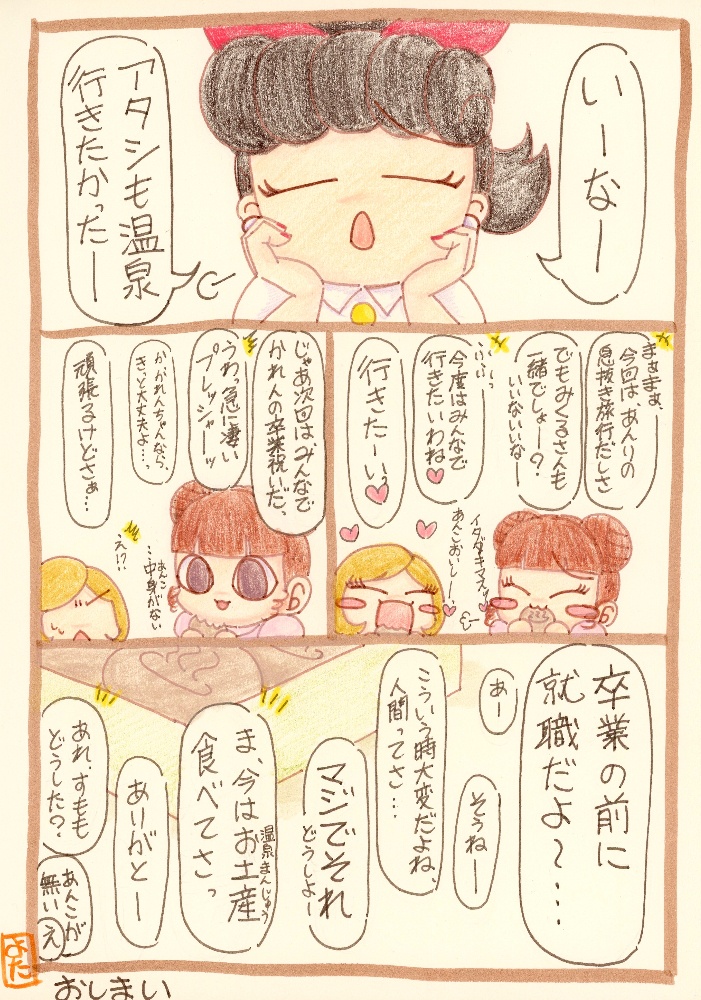 いーなー
アタシも温泉
行きたかったー
まぁまぁ、
今回は、あんりの
息抜き旅行だしさ
でもみくるさんも
一緒でしょー？
いいないいなー
いいっ
今度はみんなで
行きたいわね♥
行きたーいっ
イタダキマスッ
あんこおいしー♥
じゃあ次回はみんなで
かれんの卒業祝いだ、
うわっ急に凄い
プレッシャーッ
か、かれんちゃんなら、
きっと大丈夫よ…っ
頑張るけどさぁ…
あんこ
…中身がない
え！？
卒業の前に
就職だよ〜…
あー
そうねー
こういう時大変だよね、
人間ってさ…
マジでそれ
どうしよー
ま、今はお土産
温泉まんじゅう
食べてさっ
ありがとー
あれ、すもも
どうした？
あんこが
無い
え
よた
おしまい